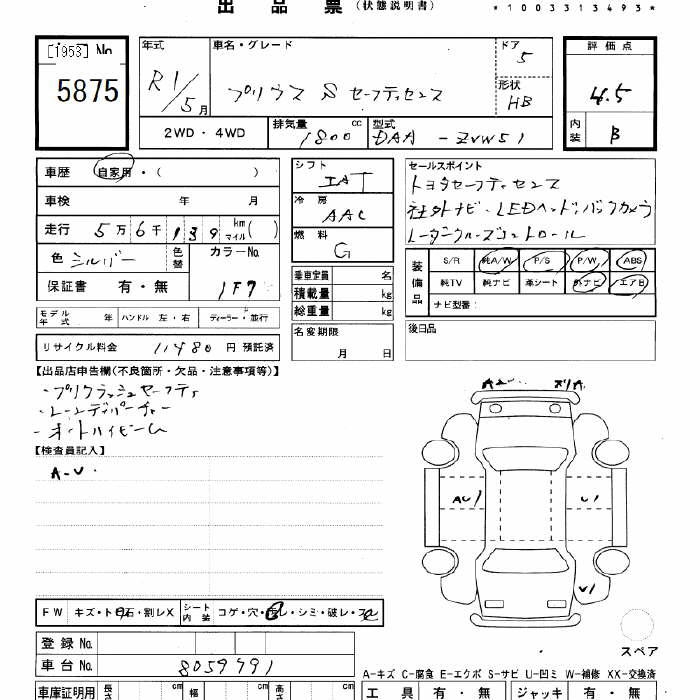 出品票 (状態説明書) *1003313493*
[1953] No 5875
年式 R1/5月
車名・グレード プリウス S セーフティセンス
ドア 5
形状 HB
評価点 4.5
内装 B
2WD・4WD
排気量 1800 cc
型式 DAA-ZVW51
車歴 自家用・( )
車検 年 月
走行 5万6千139 km マイル( )
色 シルバー 色替 カラーNo. 1F7
保証書 有・無
シフト IAT
冷房 AAC
燃料 G
セールスポイント
トヨタセーフティセンス
社外ナビ・LEDヘッド・バックカメラ
レーダークルーズコントロール
乗車定員 名
積載量 kg
総重量 kg
装備品 S/R 純A/W P/S P/W ABS
純TV 純ナビ 革シート 外ナビ エアB
ナビ型番:
モデル年式 年 ハンドル 左・右 ディーラー・並行
名変期限 月 日
後日品
リサイクル料金 11480 円 預託済
【出品店申告欄(不良箇所・欠品・注意事項等)】
・プリクラッシュセーフティ
・レーンディパーチャー
・オートハイビーム
【検査員記入】
A-U.
AU1 U1
U1
FW キズ・ト石・割レX シート内装 コゲ・穴・レ・シミ・破レ・スレ
スペア
登録No.
車台No. 8059791
A-キズ C-腐食 E-エクボ S-サビ U-凹ミ W-補修 XX-交換済
車庫証明用 長さ cm 幅 cm 高さ cm
工具 有・無 ジャッキ 有・無